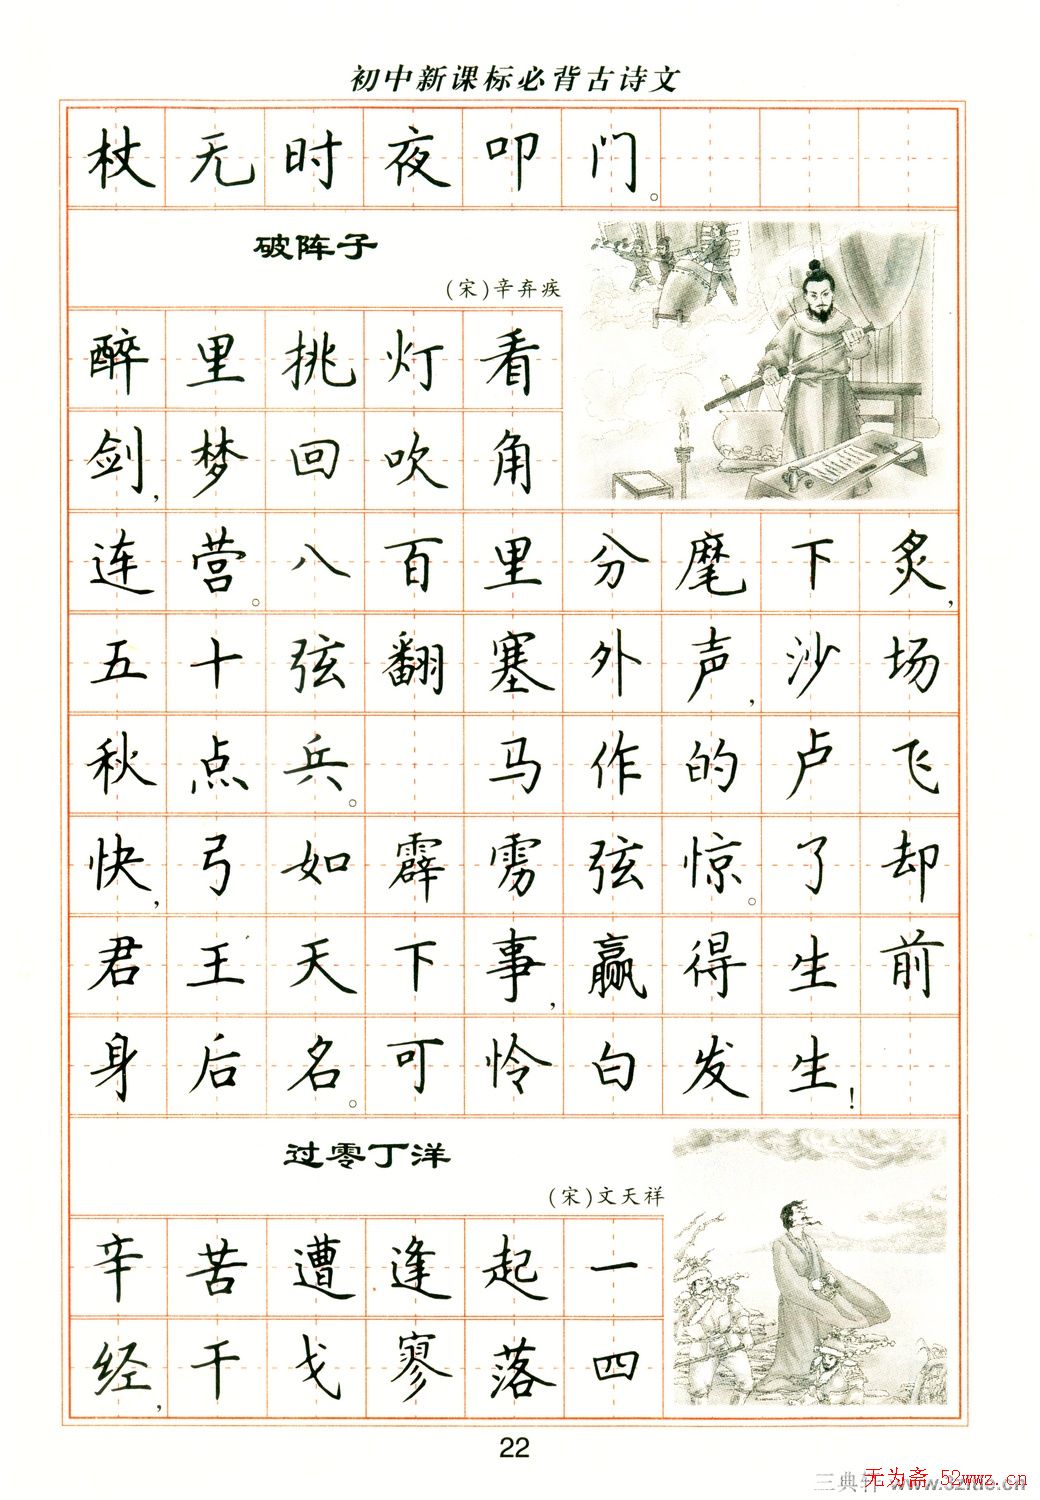 初中新课标必背古诗文
杖无时夜叩门。
破阵子
(宋)辛弃疾
醉里挑灯看
剑，梦回吹角
连营。八百里分麾下炙，
五十弦翻塞外声，沙场
秋点兵。 马作的卢飞
快，弓如霹雳弦惊。了却
君王天下事，赢得生前
身后名。可怜白发生！
过零丁洋
(宋)文天祥
辛苦遭逢起一
经，干戈寥落四
22
无为斋.52wwz.cn